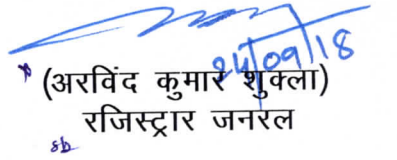 24/09/18
(अरविंद कुमार शुक्ला)
रजिस्ट्रार जनरल
sb